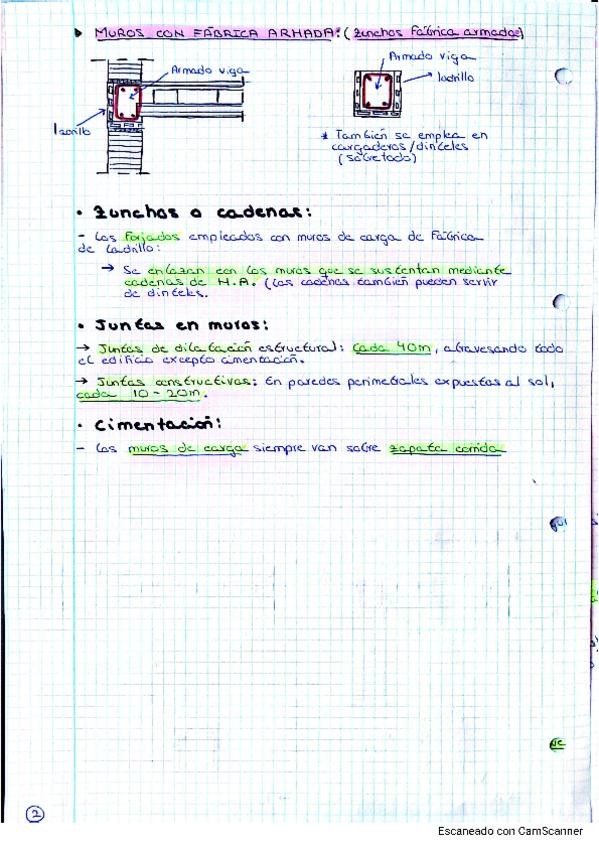 ▸ MUROS CON FÁBRICA ARMADA: (zunchos fábrica armados)
Armado viga
ladrillo
Armado viga
ladrillo
* También se emplea en
cargaderos/dinteles
(sobretodo)
• Zunchos o cadenas:
- Los forjados empleados con muros de carga de fábrica
de ladrillo:
→ Se enlazan con los muros que se sustentan mediante
cadenas de H.A. (Las cadenas también pueden servir
de dinteles.
• Juntas en muros:
→ Juntas de dilatación estructural: cada 40m, atravesando todo
el edificio excepto cimentación.
→ Juntas constructivas: En paredes perimetrales expuestas al sol,
cada 10-20m.
• Cimentación:
- Los muros de carga siempre van sobre zapata corrida
2
Escaneado con CamScanner